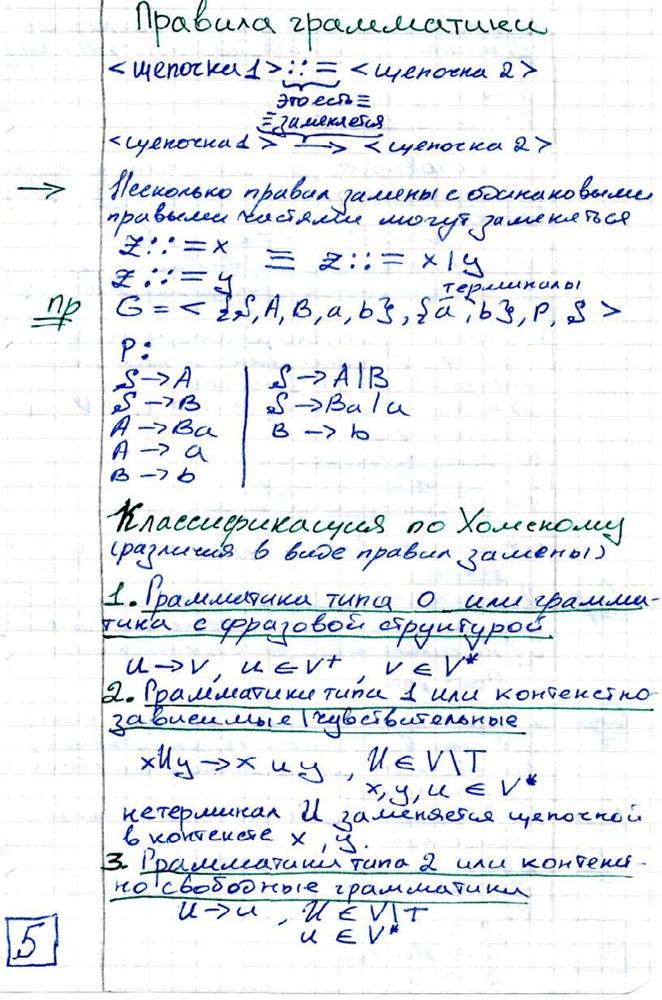 Правила грамматики
<цепочка 1> ::= <цепочка 2>
это есть ≡
≡ заменяется
<цепочка 1> → <цепочка 2>
→ Несколько правил замены с одинаковыми
правыми частями могут заменяться
Z ::= x
Z ::= y ≡ Z ::= x | y
терминалы
пр G = < {S, A, B, a, b}, {a, b}, P, S >
P:
S → A S → A | B
S → B S → Ba | a
A → Ba B → b
A → a
B → b
Классификация по Хомскому
(различия в виде правил замены)
1. Грамматика типа 0 или грамма-
тика с фразовой структурой
u → v, u ∈ V⁺, v ∈ V*
2. Грамматики типа 1 или контекстно
зависимые | чувствительные
xUy → x u y, U ∈ V\T
x, y, u ∈ V*
нетерминал U заменяется цепочкой
в контексте x, y.
3. Грамматики типа 2 или контекст-
но свободные грамматики
U → u, U ∈ V\T
u ∈ V*
5